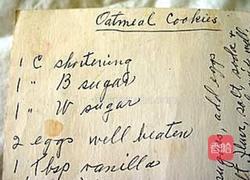 Oatmeal Cookies
1 C shortening
1 " B sugar
1 " W sugar
2 eggs well beaten
1 tbsp vanilla
add eggs
salt, soda &
香哈